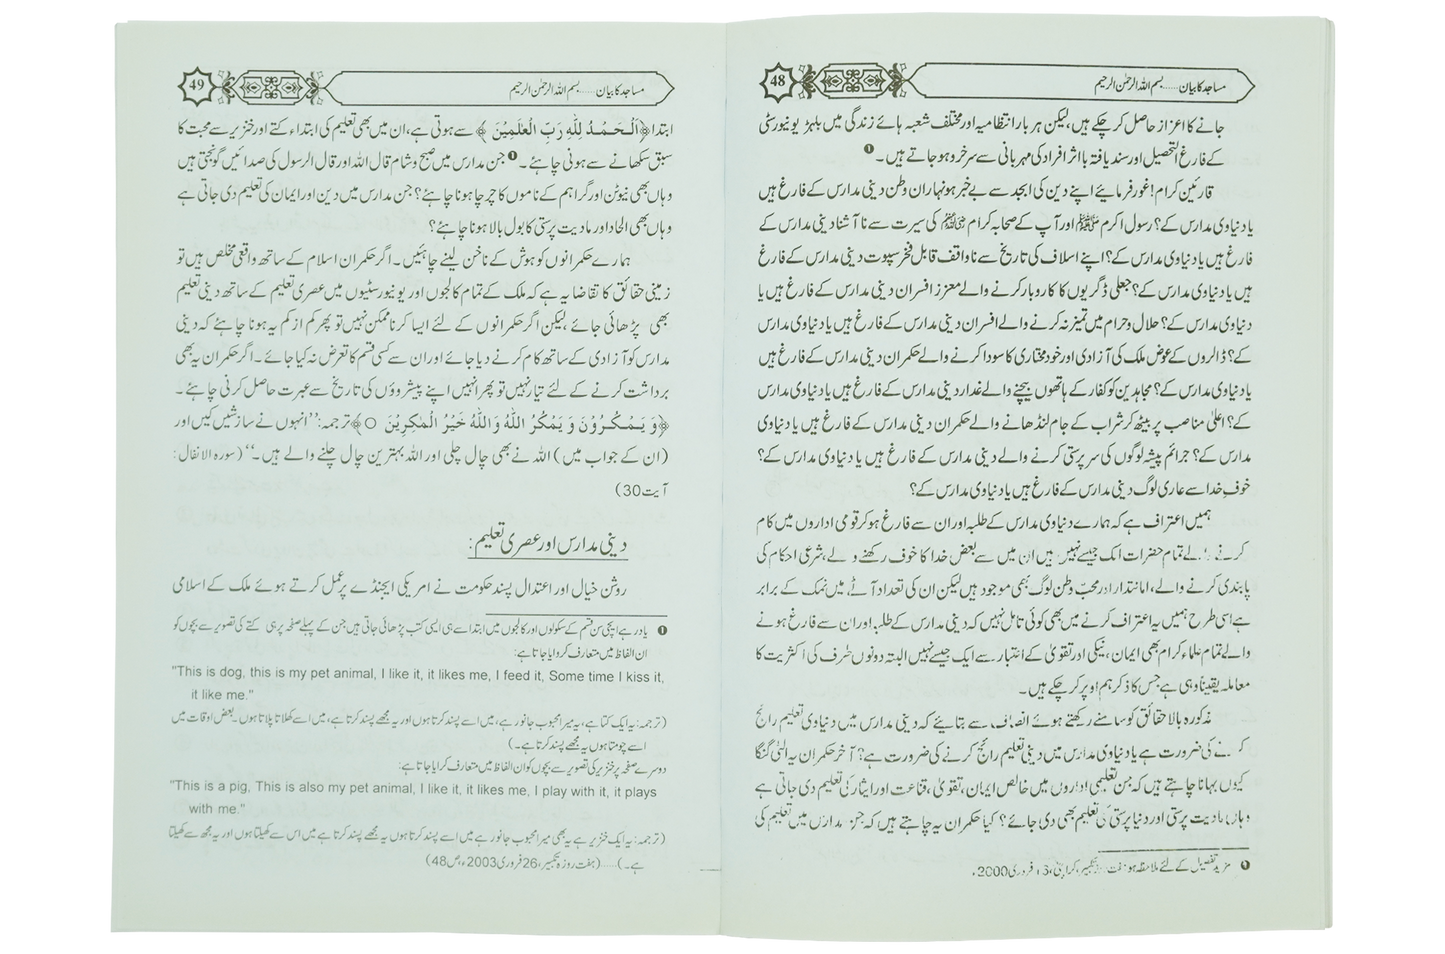 48
مساجد کا بیان ..... بسم اللہ الرحمٰن الرحیم
جانے کا اعزاز حاصل کر چکے ہیں، لیکن ہر بار انتظامیہ اور مختلف شعبہ ہائے زندگی میں بلہڑ یونیورسٹی
کے فارغ التحصیل اور سند یافتہ با اثر افراد کی مہربانی سے سرخرو ہو جاتے ہیں۔ ❶
قارئین کرام! غور فرمائیے اپنے دین کی ابجد سے بے خبر ہونہاران وطن دینی مدارس کے فارغ ہیں
یا دنیاوی مدارس کے؟ رسول اکرم ﷺ اور آپ کے صحابہ کرام کی سیرت سے نا آشنا دینی مدارس کے
فارغ ہیں یا دنیاوی مدارس کے؟ اپنے اسلاف کی تاریخ سے ناواقف قابل فخر سپوت دینی مدارس کے فارغ
ہیں یا دنیاوی مدارس کے؟ جعلی ڈگریوں کا کاروبار کرنے والے معزز افسران دینی مدارس کے فارغ ہیں یا
دنیاوی مدارس کے؟ حلال و حرام میں تمیز نہ کرنے والے افسران دینی مدارس کے فارغ ہیں یا دنیاوی مدارس
کے؟ ڈالروں کے عوض ملک کی آزادی اور خود مختاری کا سودا کرنے والے حکمران دینی مدارس کے فارغ ہیں
یا دنیاوی مدارس کے؟ مجاہدین کو کفار کے ہاتھوں بیچنے والے غدار دینی مدارس کے فارغ ہیں یا دنیاوی مدارس
کے؟ اعلیٰ مناصب پر بیٹھ کر شراب کے جام لنڈھانے والے حکمران دینی مدارس کے فارغ ہیں یا دنیاوی
مدارس کے؟ جرائم پیشہ لوگوں کی سرپرستی کرنے والے دینی مدارس کے فارغ ہیں یا دنیاوی مدارس کے؟
خوفِ خدا سے عاری لوگ دینی مدارس کے فارغ ہیں یا دنیاوی مدارس کے؟
ہمیں اعتراف ہے کہ ہمارے دنیاوی مدارس کے طلبہ اور ان سے فارغ ہو کر قومی اداروں میں کام
کرنے والے تمام حضرات ایک جیسے نہیں ہیں ان میں سے بعض خدا کا خوف رکھنے والے، شرعی احکام کی
پابندی کرنے والے، امانتدار اور محبّ وطن لوگ بھی موجود ہیں لیکن ان کی تعداد آٹے میں نمک کے برابر
ہے اسی طرح ہمیں یہ اعتراف کرنے میں بھی کوئی تامل نہیں کہ دینی مدارس کے طلبہ اور ان سے فارغ ہونے
والے تمام علماء کرام بھی ایمان، نیکی اور تقویٰ کے اعتبار سے ایک جیسے نہیں البتہ دونوں طرف کی اکثریت کا
معاملہ یقیناً وہی ہے جس کا ذکر ہم اوپر کر چکے ہیں۔
مذکورہ بالا حقائق کو سامنے رکھتے ہوئے انصاف سے بتایئے کہ دینی مدارس میں دنیاوی تعلیم رائج
کرنے کی ضرورت ہے یا دنیاوی مدارس میں دینی تعلیم رائج کرنے کی ضرورت ہے؟ آخر حکمران یہ الٹی گنگا
کیوں بہانا چاہتے ہیں کہ جن تعلیمی اداروں میں خالص ایمان، تقویٰ، قناعت اور ایثار کی تعلیم دی جاتی ہے
وہاں مادیت پرستی اور دنیا پرستی کی تعلیم بھی دی جائے؟ کیا حکمران یہ چاہتے ہیں کہ جن مدارس میں تعلیم کی
❶ مزید تفصیل کے لئے ملاحظہ ہو ہفت روزہ تکبیر، کراچی، فروری 2000ء
49
مساجد کا بیان ..... بسم اللہ الرحمٰن الرحیم
ابتدا ﴿اَلْحَمْدُ لِلّٰهِ رَبِّ الْعٰلَمِيْنَ﴾ سے ہوتی ہے، ان میں بھی تعلیم کی ابتداء کتے اور خنزیر سے محبت کا
سبق سکھانے سے ہونی چاہئے۔ ❶ جن مدارس میں صبح و شام قال اللہ اور قال الرسول کی صدائیں گونجتی ہیں
وہاں بھی نیوٹن اور گراہم کے ناموں کا چرچا ہونا چاہئے؟ جن مدارس میں دین اور ایمان کی تعلیم دی جاتی ہے
وہاں بھی الحاد اور مادیت پرستی کا بول بالا ہونا چاہئے؟
ہمارے حکمرانوں کو ہوش کے ناخن لینے چاہئیں۔ اگر حکمران اسلام کے ساتھ واقعی مخلص ہیں تو
زمینی حقائق کا تقاضا یہ ہے کہ ملک کے تمام کالجوں اور یونیورسٹیوں میں عصری تعلیم کے ساتھ دینی تعلیم
بھی پڑھائی جائے، لیکن اگر حکمرانوں کے لئے ایسا کرنا ممکن نہیں تو پھر کم از کم یہ ہونا چاہئے کہ دینی
مدارس کو آزادی کے ساتھ کام کرنے دیا جائے اور ان سے کسی قسم کا تعرض نہ کیا جائے۔ اگر حکمران یہ بھی
برداشت کرنے کے لئے تیار نہیں تو پھر انہیں اپنے پیشروؤں کی تاریخ سے عبرت حاصل کرنی چاہئے۔
﴿وَ يَمْكُرُوْنَ وَ يَمْكُرُ اللّٰهُ وَاللّٰهُ خَيْرُ الْمٰكِرِيْنَ ○﴾ ترجمہ: ’’انہوں نے سازشیں کیں اور
(ان کے جواب میں) اللہ نے بھی چال چلی اور اللہ بہترین چال چلنے والے ہیں۔‘‘ (سورہ الانفال:
آیت 30)
دینی مدارس اور عصری تعلیم:
روشن خیال اور اعتدال پسند حکومت نے امریکی ایجنڈے پر عمل کرتے ہوئے ملک کے اسلامی
❶ یاد رہے ایچی سن قسم کے سکولوں اور کالجوں میں ابتدا سے ہی ایسی کتب پڑھائی جاتی ہیں جن کے پہلے صفحہ پر ہی کتے کی تصویر سے بچوں کو
ان الفاظ میں متعارف کروایا جاتا ہے:
"This is dog, this is my pet animal, I like it, it likes me, I feed it, Some time I kiss it,
it like me."
(ترجمہ: یہ ایک کتا ہے، یہ میرا محبوب جانور ہے، میں اسے پسند کرتا ہوں اور یہ مجھے پسند کرتا ہے، میں اسے کھلاتا پلاتا ہوں۔ بعض اوقات میں
اسے چومتا ہوں یہ مجھے پسند کرتا ہے۔)
دوسرے صفحہ پر خنزیر کی تصویر سے بچوں کو ان الفاظ میں متعارف کرایا جاتا ہے:
"This is a pig, This is also my pet animal, I like it, it likes me, I play with it, it plays
with me."
(ترجمہ: یہ ایک خنزیر ہے یہ بھی میرا محبوب جانور ہے میں اسے پسند کرتا ہوں یہ مجھے پسند کرتا ہے میں اس سے کھیلتا ہوں اور یہ مجھ سے کھیلتا
ہے۔) ..... (ہفت روزہ تکبیر، 26 فروری 2003ء، ص 48)